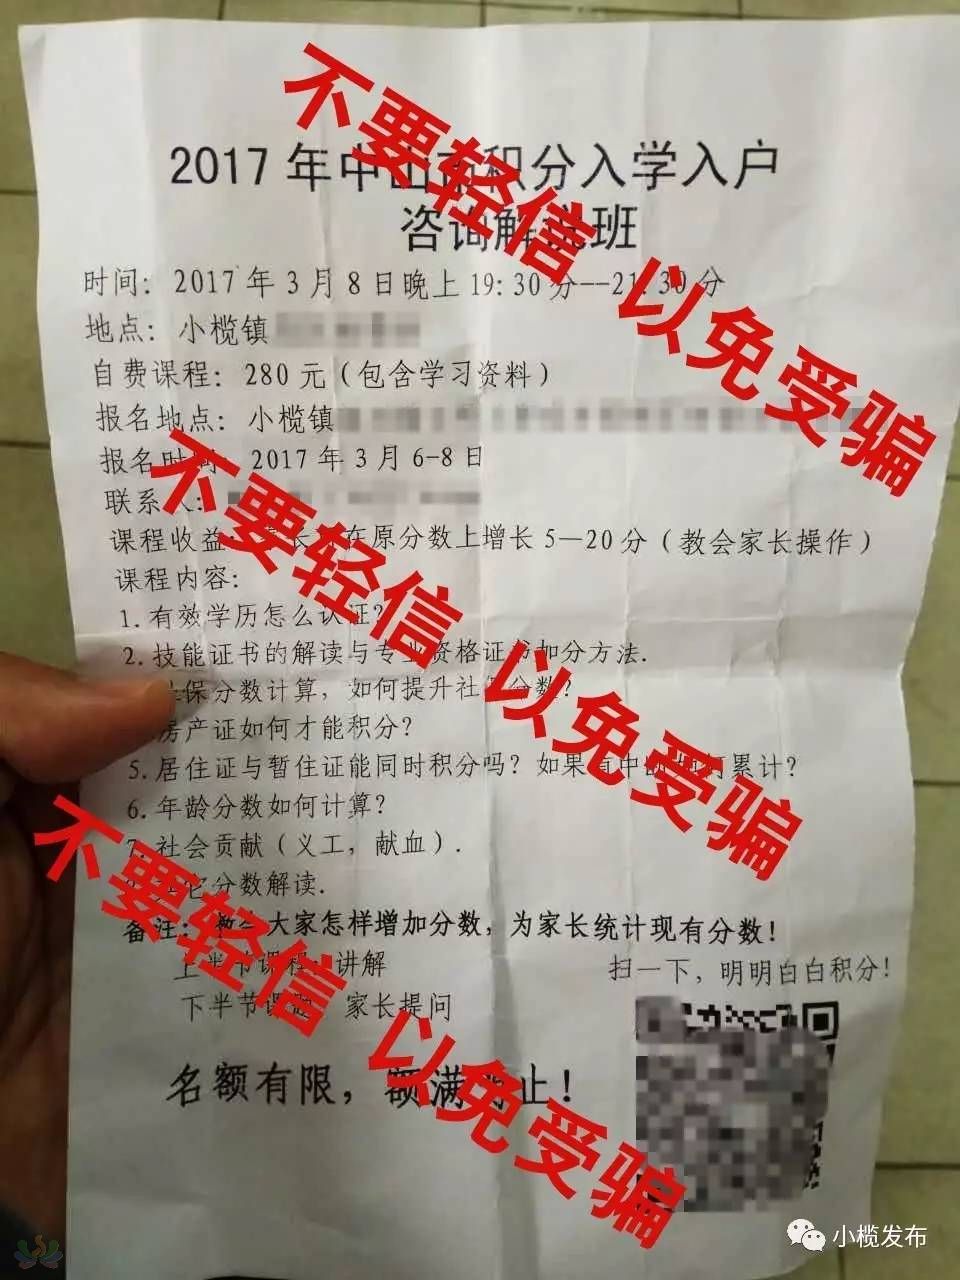 2017 年中山市积分入学入户
咨询解说班
时间：2017 年 3 月 8 日晚上 19:30 分--21:30 分
地点：小榄镇
自费课程：280 元（包含学习资料）
报名地点：小榄镇
报名时间：2017 年 3 月 6-8 日
联系人：
课程收益：长 在原分数上增长 5—20 分（教会家长操作）
课程内容：
1. 有效学历怎么认证？
2. 技能证书的解读与专业资格证书加分方法.
保分数计算，如何提升社保分数？
房产证如何才能积分？
5. 居住证与暂住证能同时积分吗？如果有中 累计？
6. 年龄分数如何计算？
7. 社会贡献（义工，献血）.
它分数解读.
备注：教会大家怎样增加分数，为家长统计现有分数！
上半节课程 讲解
扫一下，明明白白积分！
下半节课题 家长提问
名额有限，额满为止！
不要轻信 以免受骗
不要轻信 以免受骗
不要轻信 以免受骗
小榄发布